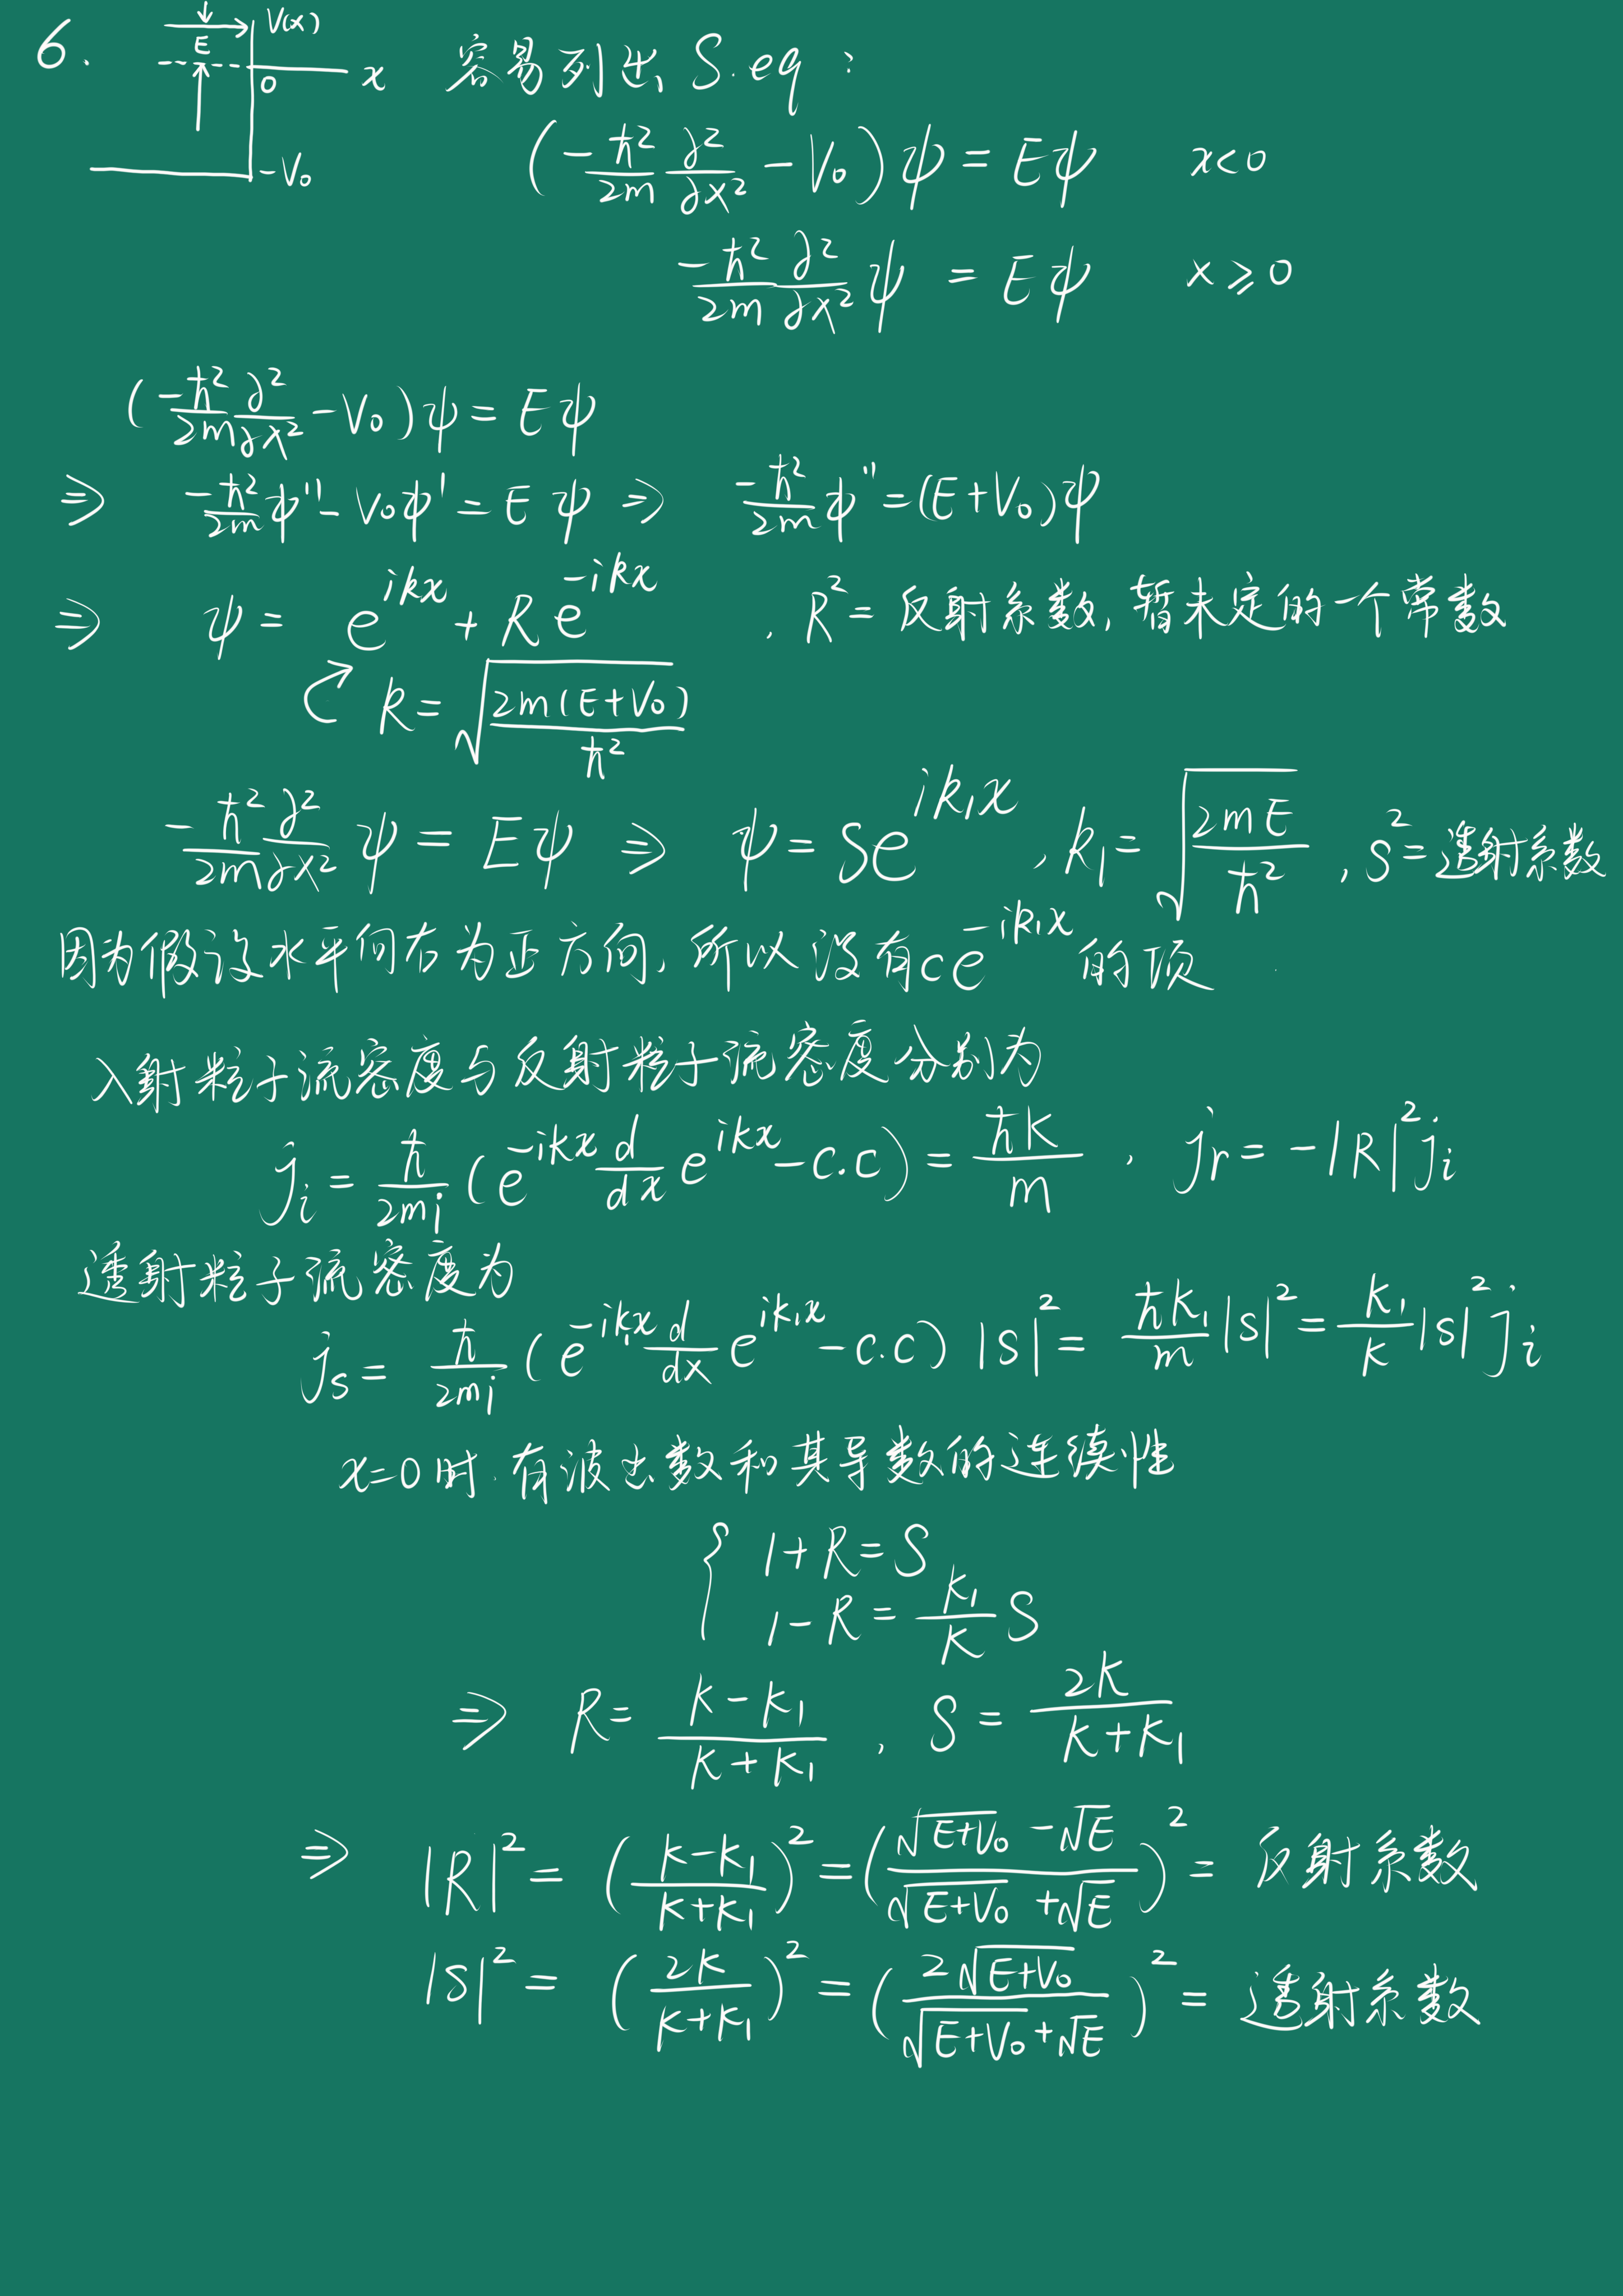 6. V(x) E 0 x -V₀ 容易列出 S.eq:
(-ħ²/2m ∂²/∂x² - V₀)ψ = Eψ x<0
-ħ²/2m ∂²/∂x² ψ = Eψ x≥0
(-ħ²/2m ∂²/∂x² - V₀)ψ = Eψ
⇒ -ħ²/2m ψ'' - V₀ψ' = Eψ ⇒ -ħ²/2m ψ'' = (E+V₀)ψ
⇒ ψ = e^{ikx} + Re^{-ikx}, R² = 反射系数, 暂未定的一个常数
k = √(2m(E+V₀)/ħ²)
-ħ²/2m ∂²/∂x² ψ = Eψ ⇒ ψ = Se^{ik₁x}, k₁ = √(2mE/ħ²), S² = 透射系数
因为假设水平向右为正方向, 所以没有ce^{-ik₁x}的项
入射粒子流密度与反射粒子流密度分别为
j_i = ħ/2mi (e^{-ikx} d/dx e^{ikx} - c.c) = ħk/m, j_r = -|R|² j_i
透射粒子流密度为
j_s = ħ/2mi (e^{-ik₁x} d/dx e^{ik₁x} - c.c) |S|² = ħk₁/m |S|² = k₁/k |S|² j_i
x=0时.有波函数和其导数的连续性
{ 1+R = S
1-R = k₁/k S
⇒ R = (k-k₁)/(k+k₁), S = 2k/(k+k₁)
⇒ |R|² = ((k-k₁)/(k+k₁))² = ((√(E+V₀) - √E)/(√(E+V₀) + √E))² = 反射系数
|S|² = (2k/(k+k₁))² = (2√(E+V₀)/(√(E+V₀) + √E))² = 透射系数